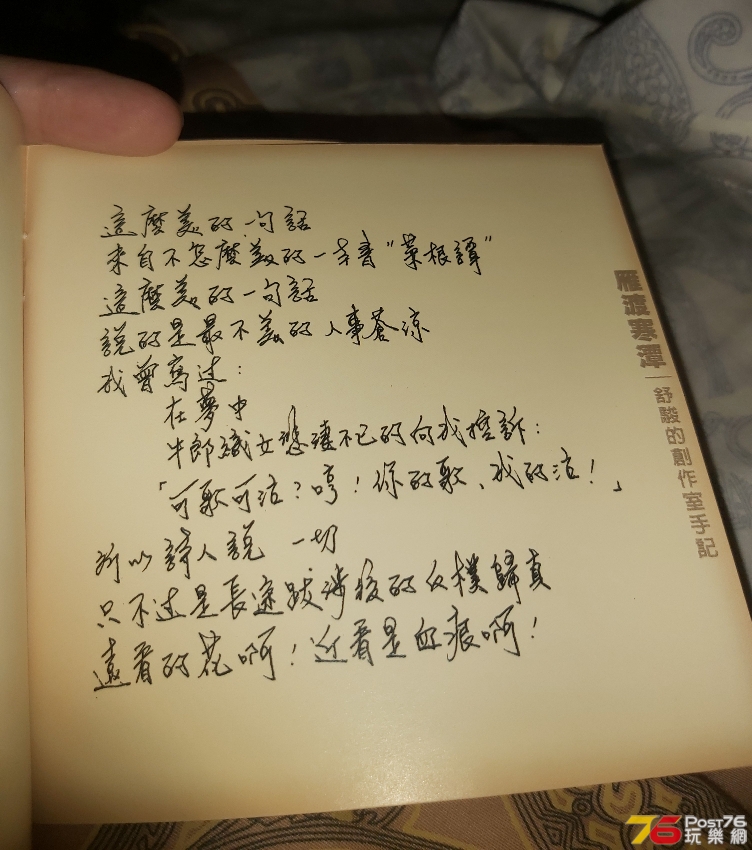 這麼美的一句話
來自不怎麼美的一本書“菜根譚”
這麼美的一句話
說的是最不美的人事蒼涼
我曾寫过：
在夢中
牛郎織女悲悽不已的向我控訴：
「可歌可泣？哼！你的歌、我的泣！」
所以詩人說 一切
只不过是長途跋涉後的反樸歸真
遠看的花啊！近看是血痕啊！
雁渡寒潭
舒駿的創作室手記
76 Post76
玩樂網